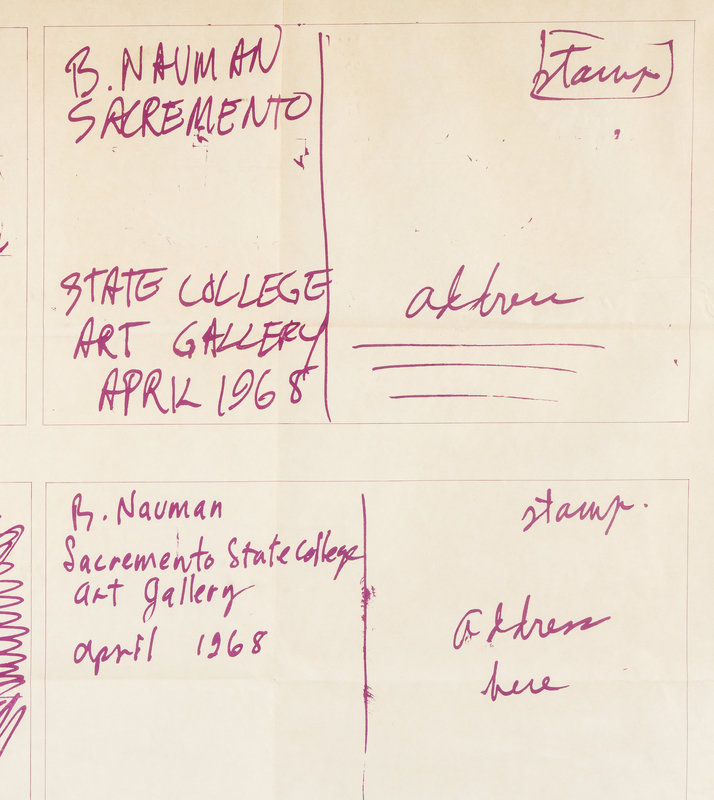 B. NAUMAN
SACREMENTO
STATE COLLEGE
ART GALLERY
APRIL 1968
stamp
address
B. Nauman
Sacremento State College
art Gallery
april 1968
stamp.
address
here